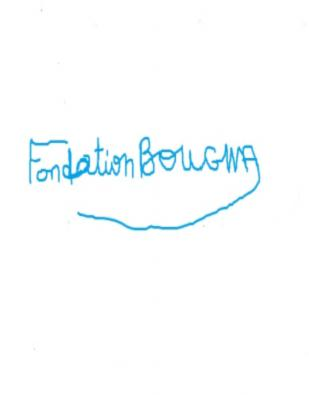 Fondation BOUGNA